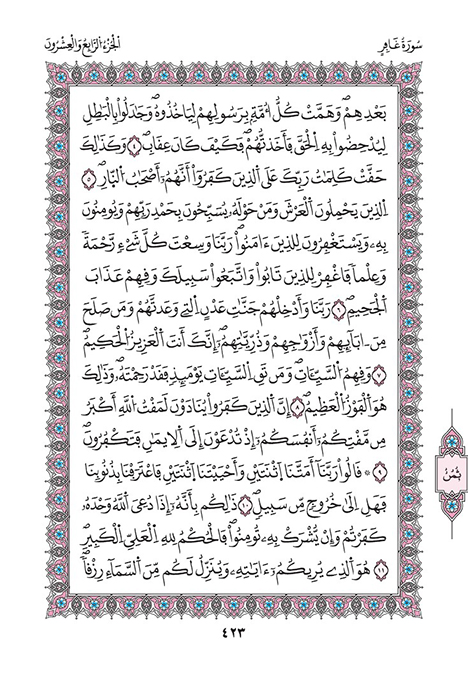 سُورَةُ غَافِرٍ
الْجُزْءُ الرَّابِعُ وَالْعِشْرُونَ
بَعْدِهِمْ وَهَمَّتْ كُلُّ أُمَّةٍ بِرَسُولِهِمْ لِيَاخُذُوهُ وَجَٰدَلُوا۟ بِالْبَٰطِلِ
لِيُدْحِضُوا۟ بِهِ الْحَقَّ فَأَخَذتُّهُمْ فَكَيْفَ كَانَ عِقَابِ ٤ وَكَذَٰلِكَ
حَقَّتْ كَلِمَٰتُ رَبِّكَ عَلَى الَّذِينَ كَفَرُوٓا۟ أَنَّهُمُۥٓ أَصْحَٰبُ النّ۪ارِ ٥
الَّذِينَ يَحْمِلُونَ الْعَرْشَ وَمَنْ حَوْلَهُۥ يُسَبِّحُونَ بِحَمْدِ رَبِّهِمْ وَيُومِنُونَ
بِهِۦ وَيَسْتَغْفِرُونَ لِلَّذِينَ ءَامَنُوا۟ رَبَّنَا وَسِعْتَ كُلَّ شَےْءٖ رَّحْمَةً
وَعِلْماً فَاغْفِرْ لِلَّذِينَ تَابُوا۟ وَاتَّبَعُوا۟ سَبِيلَكَ وَقِهِمْ عَذَابَ
الْجَحِيمِ ٦ رَبَّنَا وَأَدْخِلْهُمْ جَنَّٰتِ عَدْنٍ اِلَّتِے وَعَدتَّهُمْ وَمَن صَلَحَ
مِنَ اٰبَآئِهِمْ وَأَزْوَٰجِهِمْ وَذُرِّيَّٰتِهِمُۥٓ إِنَّكَ أَنتَ الْعَزِيزُ الْحَكِيمُ
٧ وَقِهِمُ السَّيِّـَٔاتِ وَمَن تَقِ السَّيِّـَٔاتِ يَوْمَئِذٖ فَقَدْ رَحِمْتَهُۥ وَذَٰلِكَ
هُوَ الْفَوْزُ الْعَظِيمُ ٨ إِنَّ الَّذِينَ كَفَرُوا۟ يُنَادَوْنَ لَمَقْتُ اللَّهِ أَكْبَرُ
مِن مَّقْتِكُمُۥٓ أَنفُسَكُمُۥٓ إِذْ تُدْعَوْنَ إِلَى الِايمَٰنِ فَتَكْفُرُونَ
٩ قَالُوا۟ رَبَّنَآ أَمَتَّنَا اَثْنَتَيْنِ وَأَحْيَيْتَنَا اَثْنَتَيْنِ فَاعْتَرَفْنَا بِذُنُوبِنَا
فَهَلِ اِلَىٰ خُرُوجٖ مِّن سَبِيلٖ ١٠ ذَٰلِكُم بِأَنَّهُۥٓ إِذَا دُعِيَ اللَّهُ وَحْدَهُۥ
كَفَرْتُمْ وَإِنْ يُّشْرَكْ بِهِۦ تُومِنُوا۟ فَالْحُكْمُ لِلهِ الْعَلِيِّ الْكَبِيرِ
١١ هُوَ الَّذِے يُرِيكُمُۥٓ ءَايَٰتِهِۦ وَيُنَزِّلُ لَكُم مِّنَ السَّمَآءِ رِزْقاً
ثُمُنُ
٤٢٣